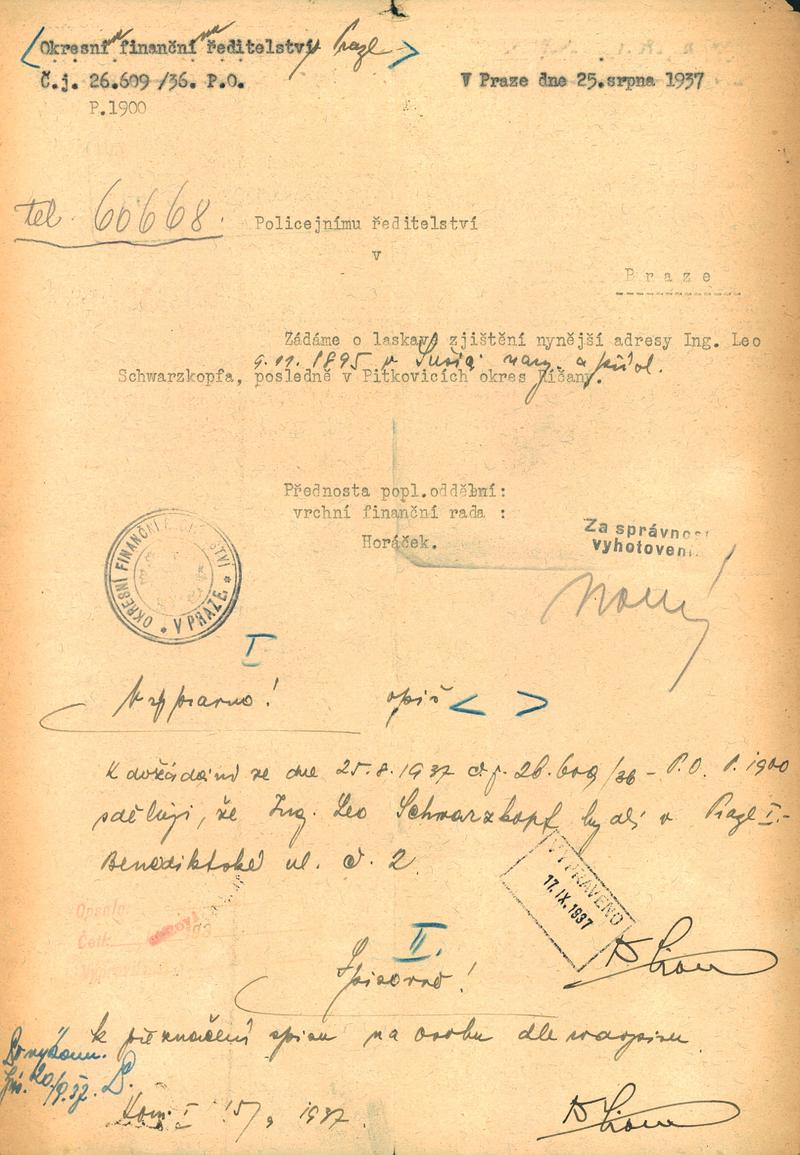 Okresní finanční ředitelství Praze
Č.j. 26.609 /36. P.O. V Praze dne 25.srpna 1937
P.1900
tel. 60668.
Policejnímu ředitelství
v
Praze
Žádáme o laskavé zjištění nynější adresy Ing. Leo
9.11.1895 v Sušici nar. a přísl.
Schwarzkopfa, posledně v Pitkovicích okres Říčany.
Přednosta popl.oddělní:
vrchní finanční rada :
Horáček.
Za správnost
vyhotovení
OKRESNÍ FINANČNÍ ŘEDITELSTVÍ * V PRAZE *
I
opis < >
K dožádání ze dne 25.8.1937 č.j. 26.609/36 - P.O. P. 1900
sděluji, že Ing. Leo Schwarzkopf bydlí v Praze I.-
Benediktské ul. č. 2
VYPRAVENO
17. IX. 1937
Opsala:
Četl:
II.
Spisovně!
k přeznačení spisu na osobu dle
20/9.37.
Kom. I 15/9 1937.